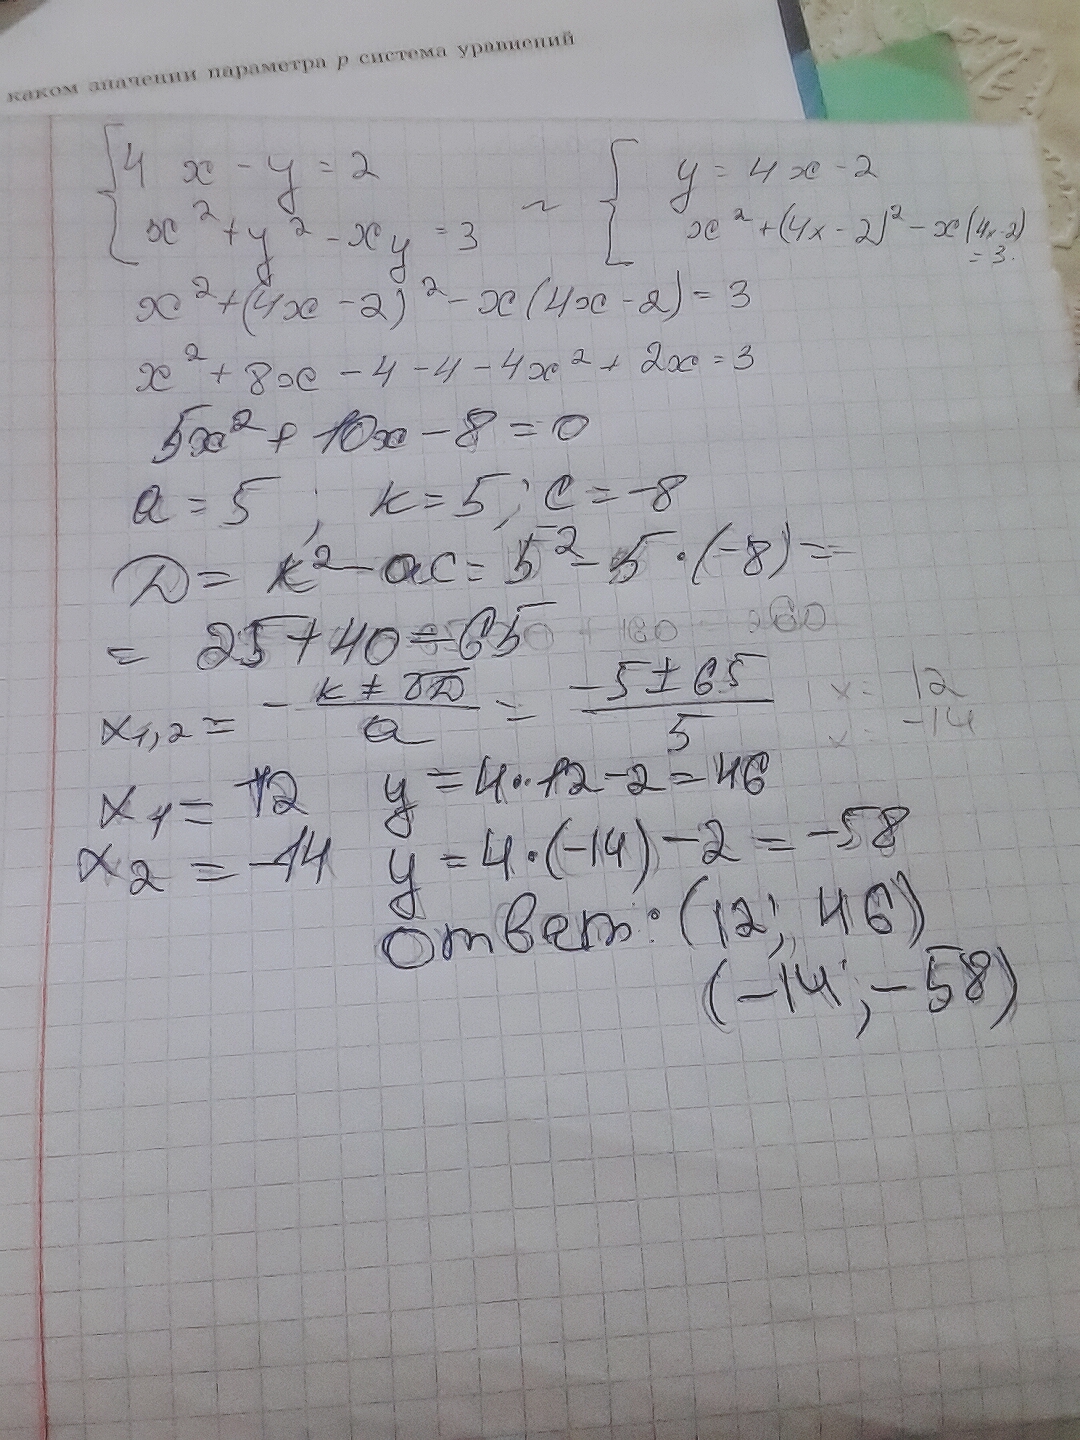 каком значении параметра p система уравнений
{ 4 x - y = 2 ~ { y = 4x - 2
x² + y² - xy = 3 x² + (4x - 2)² - x(4x-2) = 3.
x² + (4x - 2)² - x(4x - 2) = 3
x² + 8x - 4 - 4 - 4x² + 2x = 3
5x² + 10x - 8 = 0
a = 5 ; k = 5 ; c = -8
D = k² - ac = 5² - 5 · (-8) =
= 25 + 40 = 65
x₁,₂ = -k ± √D / a = -5 ± 65 / 5 x = 12
x = -14
x₁ = 12 y = 4 · 12 - 2 = 46
x₂ = -14 y = 4 · (-14) - 2 = -58
ответ: (12; 46)
(-14; -58)